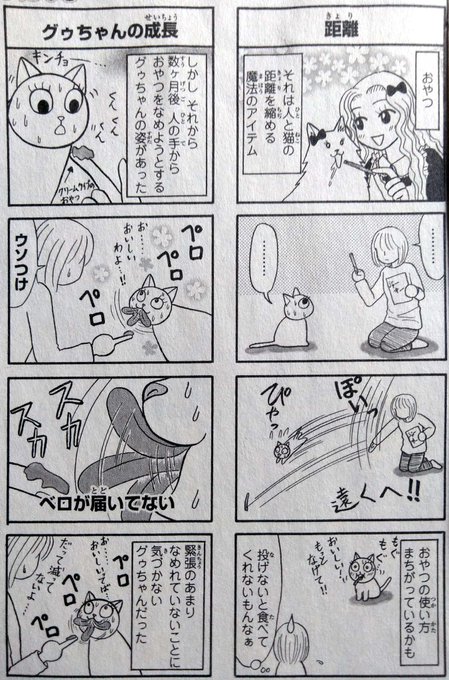 距離
きょり
おやつ
それは人と猫の
ひと ねこ
距離を縮める
きょり ちぢ
魔法のアイテム
まほう
………
………
ぽいっ
ぴゃっ
遠くへ!!
おやつの使い方
つか かた
まちがっているかも
もぐ
もぐ
おいしい!
もっとなげて!!
投げないと食べて
な た
くれないもんなぁ
グゥちゃんの成長
せいちょう
キンチョー
しかし それから
数ヶ月後 人の手から
すうかげつご ひと て
おやつをなめようとする
グゥちゃんの姿があった
すがた
くん
くん
クリームタイプの
おやつ
ペロ
ペロ
ペロ
お……
おいしい
わよ…!!
ウソつけ
スカ
スカ
ベロが届いてない
とど
緊張のあまり
きんちょう
なめれていないことに
気づかない
き
グゥちゃんだった
お…
おいしいってば
だって減って
ないよ…